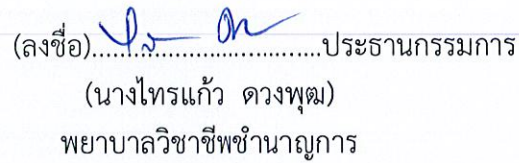 (ลงชื่อ)......................................ประธานกรรมการ
(นางไทรแก้ว ดวงพุฒ)
พยาบาลวิชาชีพชำนาญการ